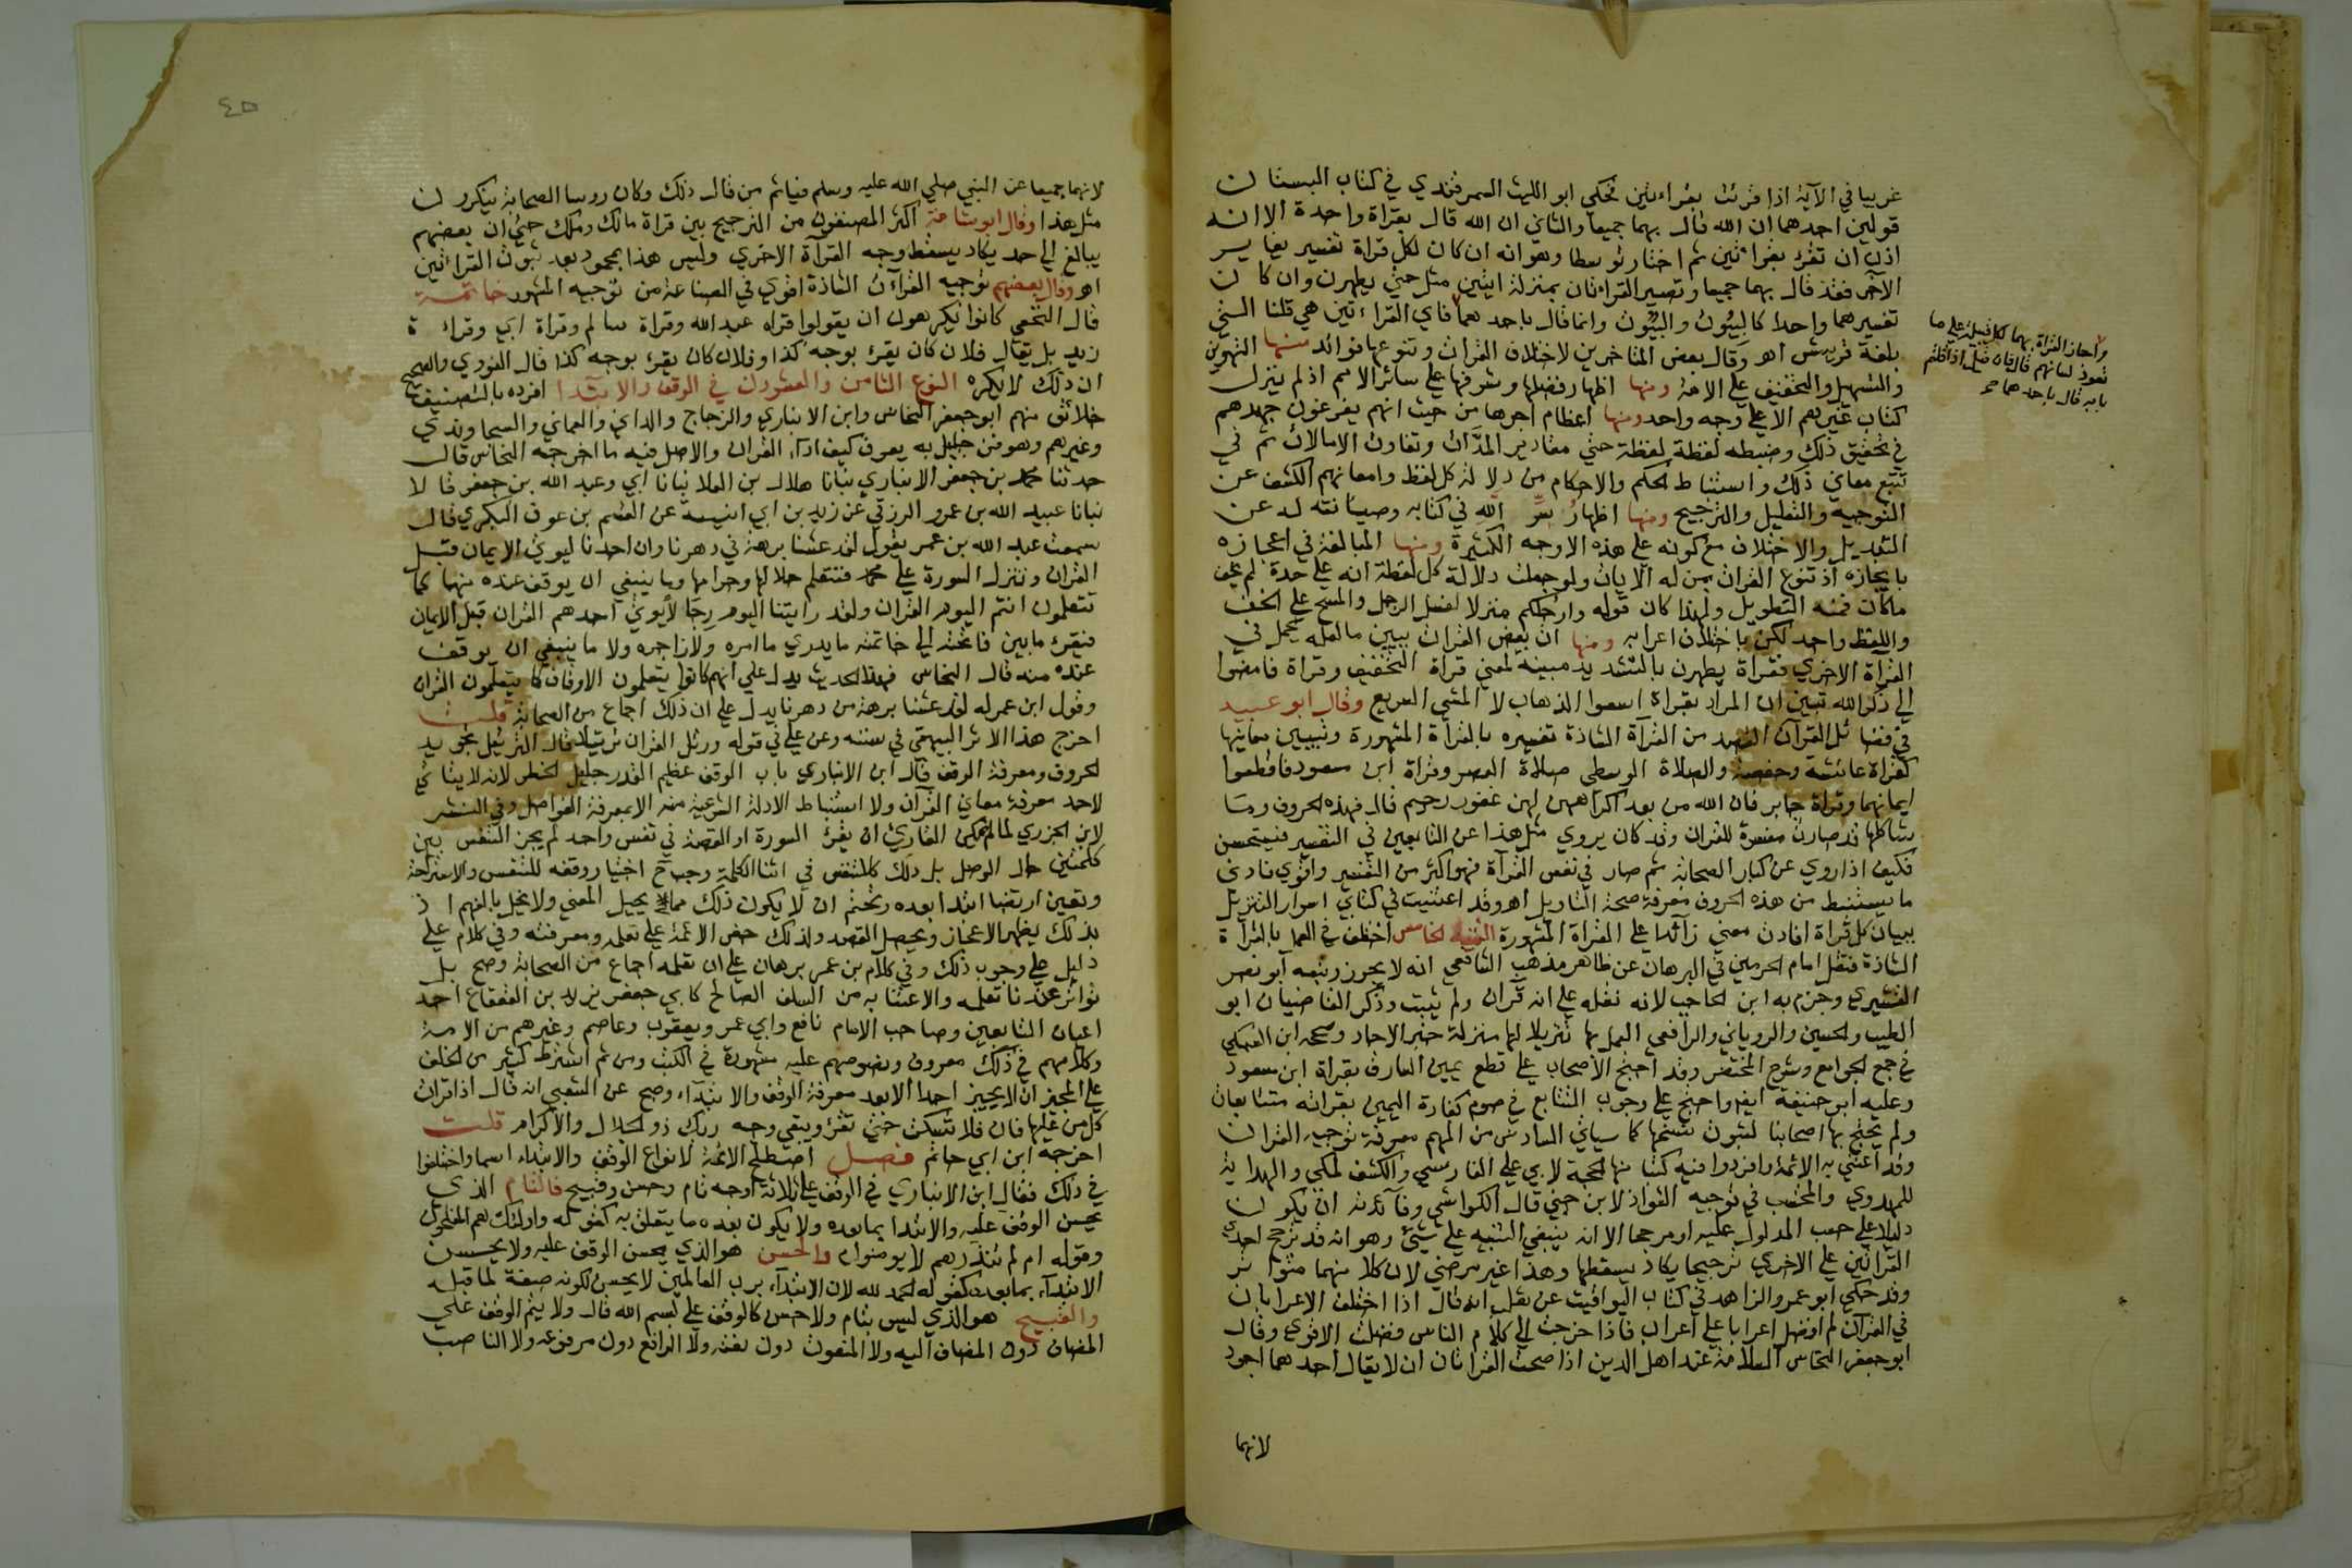 غريبا في الآية اذا قرئت بقراءتين فحكى ابو الليث السمرقندي في كتاب البستان
قولين احدهما ان الله قال بهما جميعا والثاني ان الله قال بقراة واحدة الا انه
اذن ان تقرء بقراءتين ثم اختار توسطا وهو انه ان كان لكل قراة تفسير يغاير
الآخر فقد قال بهما جميعا وتصير القراءتان بمنزلة ايتين مثل حتى يطهرن وان كان
تفسيرهما واحدا كالبيُوت والبِيوت وانما قال باحدهما فاي القراءتين هي قلنا التي
بلغة قريش اهـ وقال بعض المتاخرين لاختلاف القرات وتنوعها فوائد منها التهوين
والتسهيل والتخفيف على الامة ومنها اظهار فضلها وشرفها على سائر الامم اذ لم ينزل
كتاب غيرهم الا على وجه واحد ومنها اعظام اجرها من حيث انهم يفرغون جهدهم
في تحقيق ذلك وضبطه لفظة لفظة حتى مقادير المدّات وتفاوت الامالات ثم في
تتبع معاني ذلك واستنباط الحكم والاحكام من دلالة كل لفظ وامعانهم الكشف عن
التوجيه والتعليل والترجيح ومنها اظهار سرّ الله في كتابه وصيانته له عن
التبديل والاختلاف مع كونه على هذه الاوجه الكثيرة ومنها المبالغة في اعجازه
بايجازه اذ تنوع القرات بمنزلة الايات ولو جعلت دلالة كل لفظة اية على حدة لم يخف
ما كان فيه التطويل ولهذا كان قوله وارجلكم منزلا لغسل الرجل والمسح على الخف
واللفظ واحد لكن باختلاف اعرابه ومنها ان بعض القرات يبين ما لعله يجمل في
القراة الاخرى فقراة يطهرن بالتشديد مبينه لمعنى قراة التخفيف وقراة فامضوا
الى ذكر الله تبين ان المراد بقراة اسعوا الذهاب لا المشي السريع وقال ابو عبيد
في فضائل القرآن القصد من القرآة الشاذة تفسير بالقرأة المشهورة وتبيين معانيها
كقراة عائشة وحفصة والصلاة الوسطى صلاة العصر وقراة ابن مسعود فاقطعوا
ايمانهما وقراة جابر فان الله من بعد اكراههن لهن غفور رحيم قال فهذه الحروف وما
شاكلها قد صارت مفسرة للقران وقد كان يروي مثل هذا عن التابعين في التفسير فيستحسن
فكيف اذا روي عن كبار الصحابة ثم صار في نفس القرآة فهو اكثر من التفسير واقوى فادنى
ما يستنبط من هذه الحروف معرفة صحة التاويل اهـ وقد اعتنيت في كتابي اسرار التنزيل
ببيان كل قراة افادت معنى زائدا على القراة المشهورة التنبيه الخامس اختلف في العمل بالقرآة
الشاذة فنقل امام الحرمين في البرهان عن ظاهر مذهب الشافعي انه لا يجوز وتبعه ابو نصر
القشيري وجزم به ابن الحاجب لانه نقله على انه قرآن ولم يثبت وذكر القاضيان ابو
الطيب والحسين والروياني والرافعي العمل بها تنزيلا لها منزلة خبر الاحاد وصححه ابن السبكي
في جمع الجوامع وشرح المختصر وقد احتج الاصحاب على قطع يمين السارق بقراة ابن مسعود
وعليه ابو حنيفة ايضا واحتج على وجوب التتابع في صوم كفارة اليمين بقراته متتابعات
ولم يحتج بها اصحابنا لثبوت نسخها كما سياتي السادس من المهم معرفة توجيه القرات
وقد اعتنى به الائمة وافردوا فيه كتبا منها الحجة لابي علي الفارسي والكشف لمكي والهداية
للمهدوي والمحتسب في توجيه الشواذ لابن جني قال الكواشي وفآئدته ان يكون
دليلا على حسب المدلول عليه او مرجحا الا انه ينبغي التنبيه على شيئ وهو انه قد ترجح احدى
القراتين على الاخرى ترجيحا يكاد يسقطها وهذا غير مرضي لان كلا منهما متواتر
وقد حكى ابو عمرو الزاهد في كتاب اليواقيت عن ثعلب انه قال اذا اختلف الاعرابان
في القرآن لم افضل اعرابا على اعراب فاذا خرجت الى كلام الناس فضلت الاقوى وقال
ابو جعفر النحاس السلامة عند اهل الدين اذا صحت القراتان ان لا يقال احدهما اجود
لانهما
واجاز القراة بهما لكل قبيلة على ما
تعود لسانهم قال فان قيل اذا قلتم
بانه قال باحدهما صح
٤٥
لانهما جميعا عن النبي صلى الله عليه وسلم فياثم من قال ذلك وكان روسا الصحابة ينكرون
مثل هذا وقال ابو شامة اكثر المصنفون من الترجيح بين قراة مالك وملك حتى ان بعضهم
يبالغ الى حد يكاد يسقط وجه القرآة الاخرى وليس هذا بمحمود بعد ثبوت القراءتين
اهـ وقال بعضهم توجيه القرآت الشاذة اقوى في الصناعة من توجيه المشهور خاتمة
قال النخعي كانوا يكرهون ان يقولوا قراة عبد الله وقراة سالم وقراة ابي وقراءة
زيد بل يقال فلان كان يقرء بوجه كذا وفلان كان يقرء بوجه كذا قال النووي والصحيح
ان ذلك لا يكره النوع الثامن والعشرون في الوقف والابتدا افرده بالتصنيف
خلائق منهم ابو جعفر النحاس وابن الانباري والزجاج والداني والعماني والسجاوندي
وغيرهم وهو فن جليل به يعرف كيف اداء القران والاصل فيه ما اخرجه النحاس قال
حدثنا محمد بن جعفر الانباري نبانا هلال بن العلا نبانا ابي وعبد الله بن جعفر قالا
نبانا عبيد الله بن عمرو الرزقي عن زيد بن ابي انيسة عن القسم بن عوف البكري قال
سمعت عبد الله بن عمر يقول لقد عشنا برهة في دهرنا وان احدنا ليوتى الايمان قبل
القران وتنزل السورة على محمد فنتعلم حلالها وحرامها وما ينبغي ان يوقف عنده منها كما
تتعلمون انتم اليوم القران ولقد راينا اليوم رجالا يوتى احدهم القران قبل الايمان
فيقرء ما بين فاتحته الى خاتمته ما يدري ما امره ولا زاجره ولا ما ينبغي ان يوقف
عنده منه قال النحاس فهذا الحديث يدل على انهم كانوا يتعلمون الاوقاف كما يتعلمون القران
وقول ابن عمر له لقد عشنا برهة من دهرنا يدل على ان ذلك اجماع من الصحابة قلت
اخرج هذا الاثر البيهقي في سننه وعن علي في قوله ورتل القران ترتيلا قال الترتيل تجويد
الحروف ومعرفة الوقف قال ابن الانباري باب الوقف عظيم القدر جليل الخطر لانه لا يتاتى
لاحد معرفة معاني القرآن ولا استنباط الادلة الشرعية منه الا بمعرفة الفواصل وفي النشر
لابن الجزري لما لم يمكن القارئ ان يقرء السورة او القصة في نفس واحد لم يجز التنفس بين
كلمتين حال الوصل بل ذلك كالتنفس في اثنا الكلمة وجب ح اختيار وقفه للتنفس والاستراحة
وتعين ارتضا ابتدا بعده وتحتم ان لا يكون ذلك مما يحيل المعنى ولا يخل بالفهم اذ
بذلك يظهر الاعجاز ويحصل القصد ولذلك حض الائمة على تعلمه ومعرفته وفي كلام علي
دليل على وجوب ذلك وفي كلام بن عمر برهان على ان تعلمه اجماع من الصحابة وصح بل
تواتر عندنا تعلمه والاعتنا به من السلف الصالح كابي جعفر يزيد بن القعقاع احد
اعيان التابعين وصاحب الامام نافع وابي عمر ويعقوب وعاصم وغيرهم من الائمة
وكلامهم في ذلك معروف ونصوصهم عليه مشهورة في الكتب ومن ثم اشترط كثير من الخلف
على المجيز ان لا يجيز احدا الا بعد معرفة الوقف والابتداء وصح عن الشعبي انه قال اذا قرات
كل من عليها فان فلا تسكت حتى تقرء ويبقى وجه ربك ذو الجلال والاكرام قلت
اخرجه ابن ابي حاتم فصل اصطلح الائمة لانواع الوقف والابتداء اسما واختلفوا
في ذلك فقال ابن الانباري في الوقف على ثلاثة اوجه تام وحسن وقبيح فالتام الذي
يحسن الوقف عليه والابتدا بما بعده ولا يكون بعده ما يتعلق به كقوله واولئك هم المفلحون
وقوله ام لم تنذرهم لا يومنون والحسن هو الذي يحسن الوقف عليه ولا يحسن
الابتداء بما بعده كقوله الحمد لله لان الابتداء برب العالمين لا يحسن لكونه صفة لما قبله
والقبيح هو الذي ليس بتام ولا حسن كالوقف على بسم الله قال ولا يتم الوقف على
المضاف دون المضاف اليه ولا المنعوت دون نعته ولا الرافع دون مرفوعه ولا الناصب